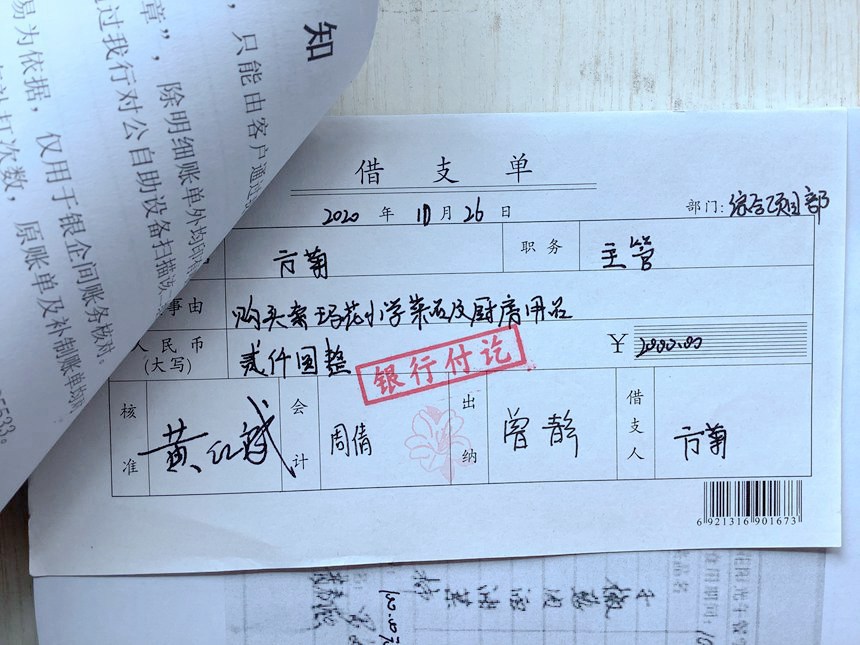 知
，只能由客户通过
章”，除明细账单外均
过我行对公自助设备扫描
易为依据，仅用于银企间账务核对。
打次数，原账单及补制账单均
借支单
2020 年 10 月 26 日
部门: 综合项目部
方菊
职务
主管
事由
购买索玛花小学菜品及厨房用品
人民币
(大写)
贰仟圆整
￥2000.00
银行付讫
核准
黄红斌
会计
周倩
出纳
曾静
借支人
方菊
6 921316 901673